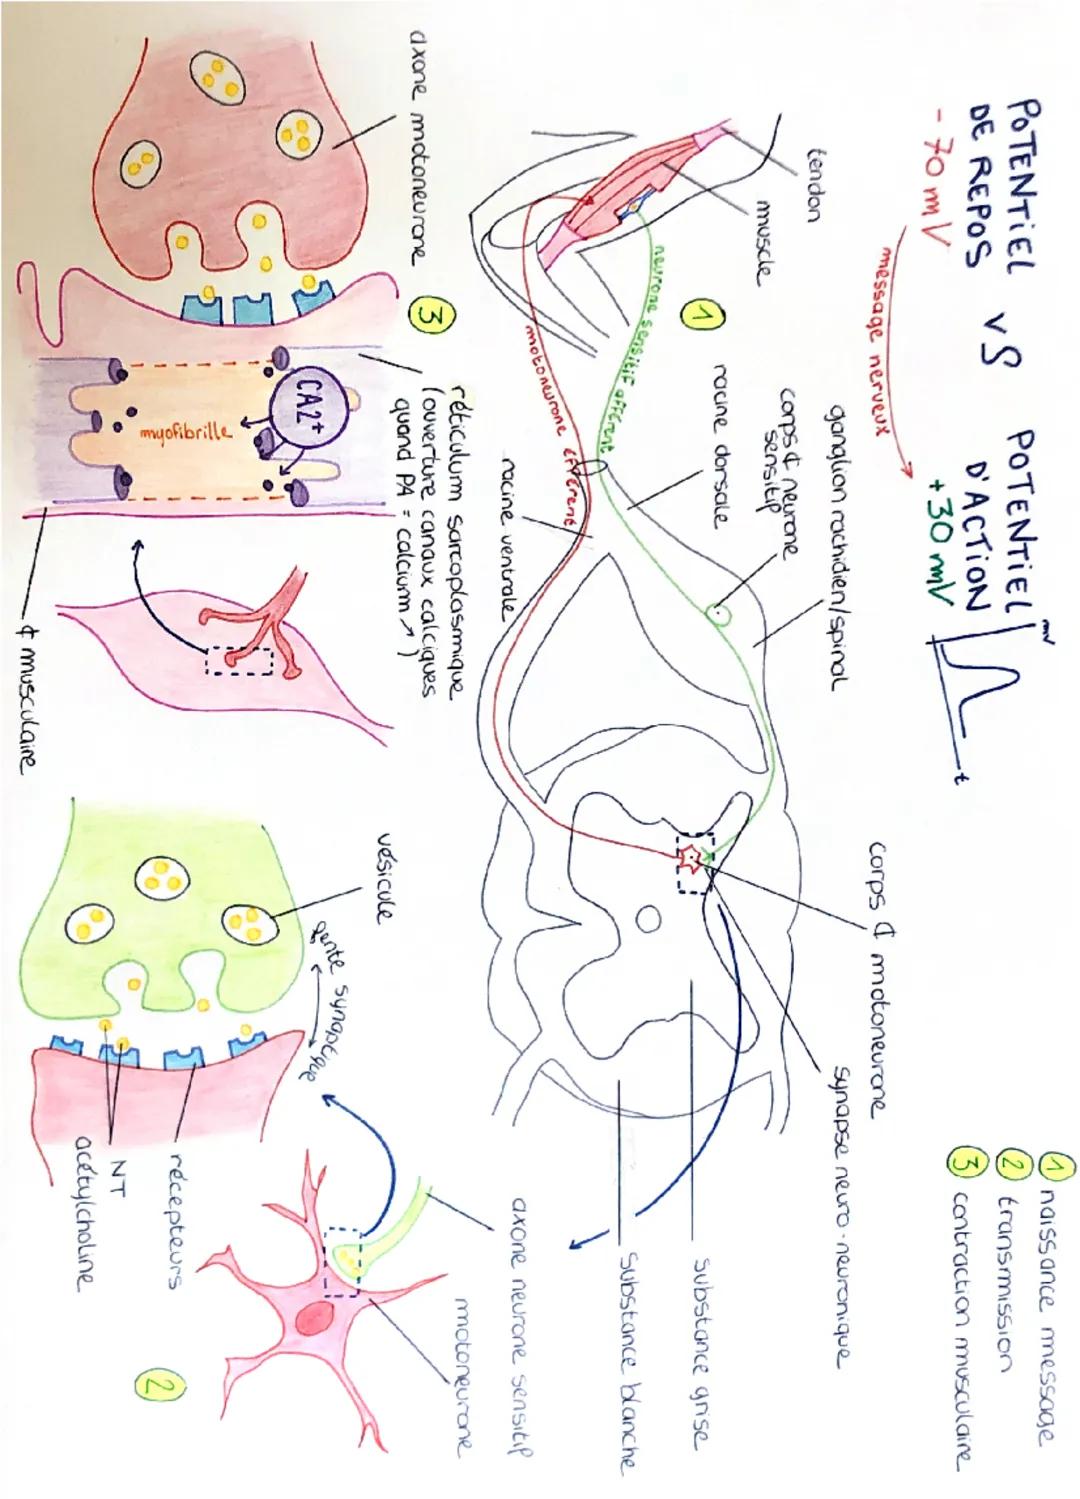 POTENTIEL VS POTENTIEL
DE REPOS D'ACTION
- 70 mV + 30 mV
message nerveux
mV
t
1 naissance message
2 transmission
3 contraction musculaire
tendon
muscle
1
neurone sensitif afférent
motoneurone efférent
ganglion rachidien/spinal
corps ¢ neurone
sensitif
racine dorsale
racine ventrale
corps ¢ motoneurone
synapse neuro-neuronique
substance grise
substance blanche
axone motoneurone
3
réticulum sarcoplasmique
(ouverture canaux calciques
quand PA = calcium ↗)
CA2+
myofibrille
¢ musculaire
vésicule
fente synaptique
récepteurs
NT
acétylcholine
axone neurone sensitif
motoneurone
2